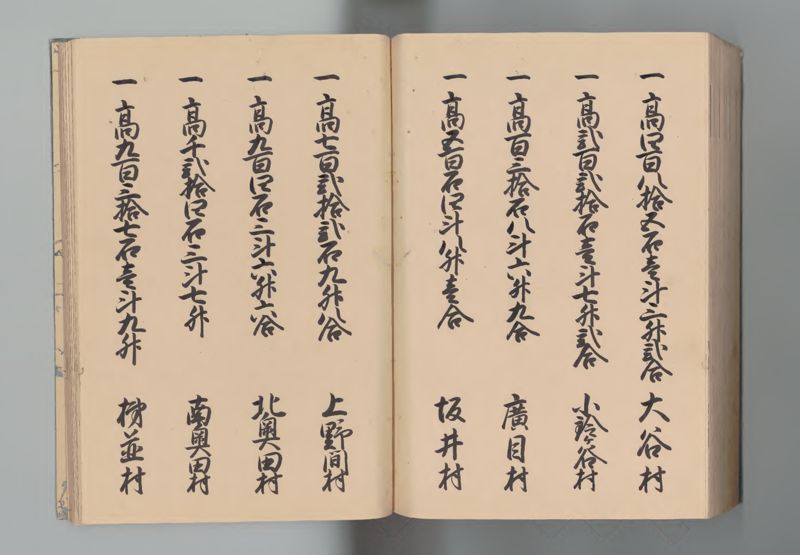 一 高四百八拾五石壱斗三升弐合 大谷村
一 高弐百弐拾石壱斗七升弐合 小鈴谷村
一 高百三拾石八斗六升九合 廣目村
一 高五百石四斗八升壱合 坂井村
一 高七百弐拾弐石九升八合 上野間村
一 高九百四石三斗六升六合 北奥田村
一 高千弐拾四石三斗七升 南奥田村
一 高九百三拾七石壱斗九升 柿並村